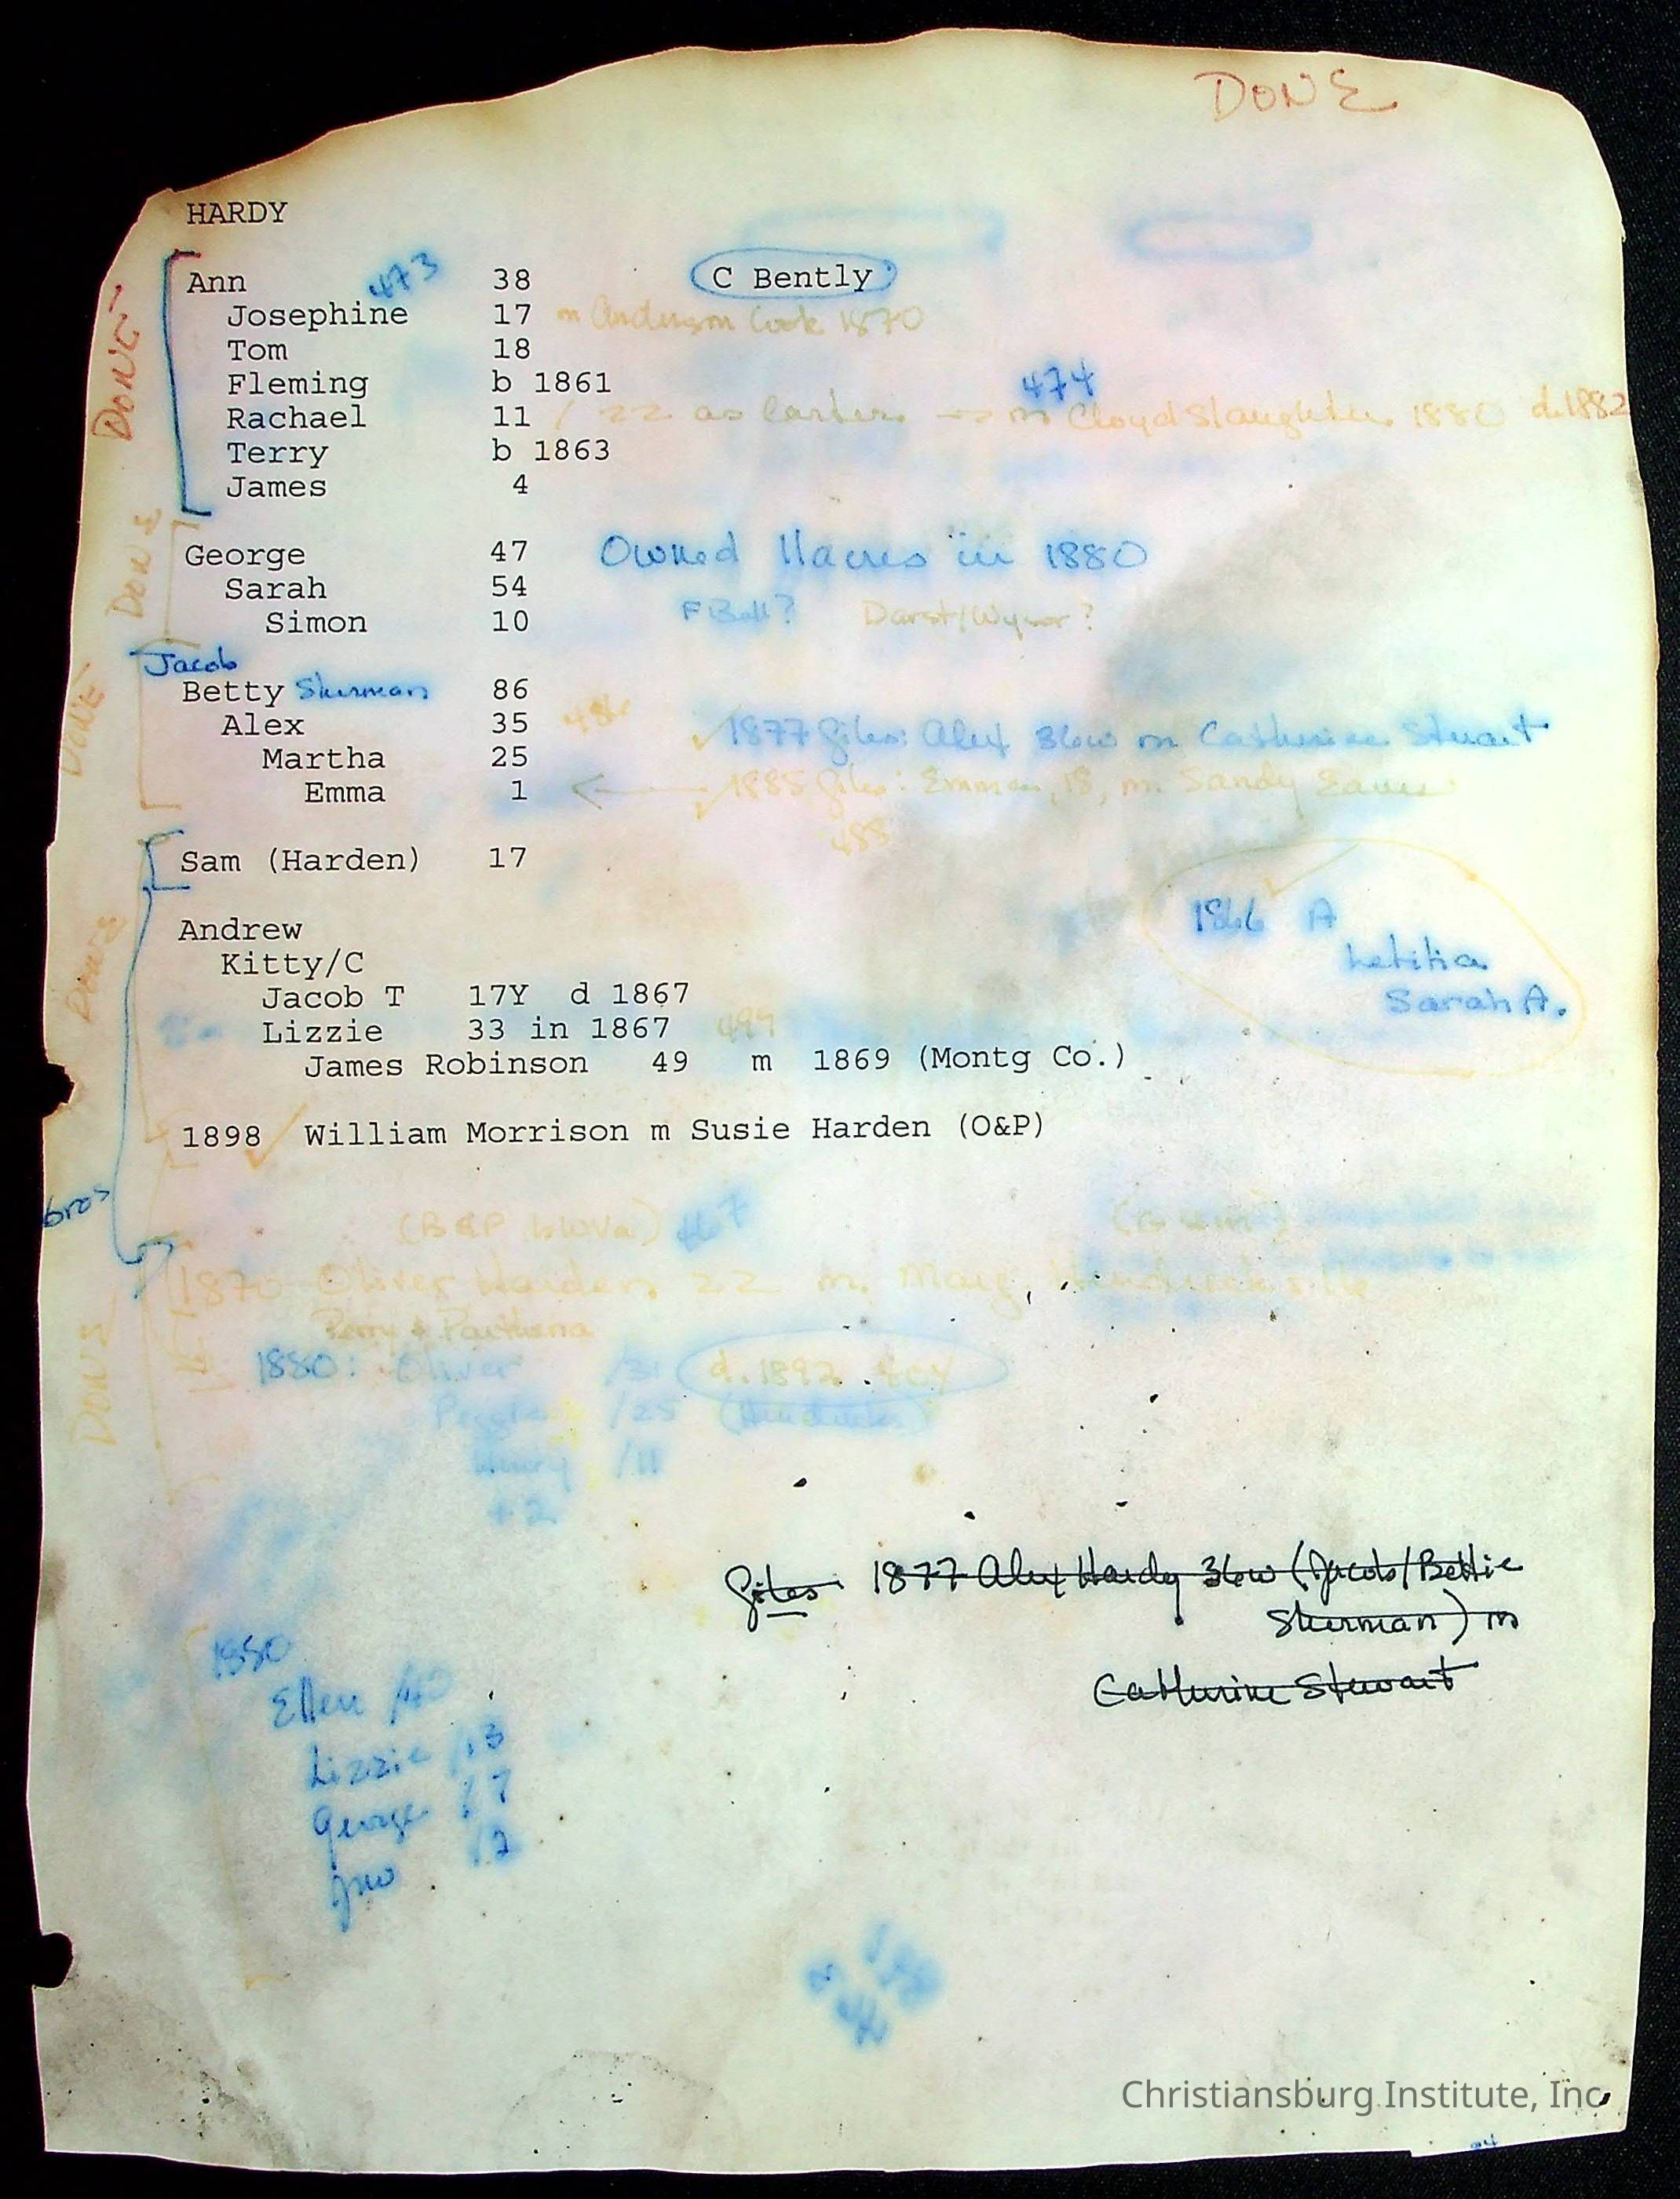 DONE
HARDY
Ann 473 38 C Bently
Josephine 17 m Anderson Cook 1870
Tom 18
Fleming b 1861 474
Rachael 11 / 22 as Carters → m Cloyd Slaughter 1880 d. 1882
Terry b 1863
James 4
DONE
George 47 Owned 11 acres in 1880
Sarah 54
Simon 10 F Bell? Darst/Wysor?
DONE
Jacob
Betty Sherman 86
Alex 35 1877 Giles: Alex 36w m Catherine Stuart
Martha 25
Emma 1 ← 1885 Giles: Emma, 18, m. Sandy
DONE
488
Sam (Harden) 17
1866 A
Letitia
Sarah A.
Andrew
Kitty/C
Jacob T 17Y d 1867
Lizzie 33 in 1867 499
James Robinson 49 m 1869 (Montg Co.)
DONE
1898 William Morrison m Susie Harden (O&P)
bros
(B&P b WVa) 467
1870 Oliver Harden 22 m. Mary
Perry & Parthena
1880: Oliver /31 d. 1892
/25
/11
+2
DONE
Giles: 1877 Alex Hardy 36w (Jacob/Bettie
Sherman) m
Catherine Stewart
1880
Ellen /40
Lizzie /13
George /7
Jno /2
Christiansburg Institute, Inc.